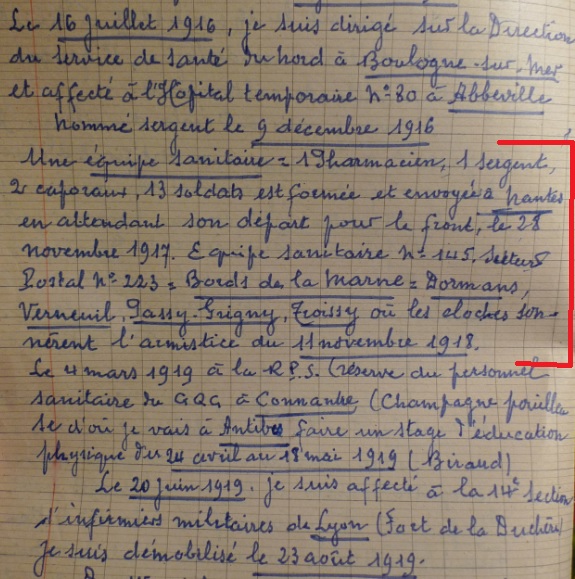 Le 16 juillet 1916, je suis dirigé sur la Direction
du service de santé du nord à Boulogne-sur-Mer
et affecté à l'Hôpital temporaire n° 80 à Abbeville
nommé sergent le 9 décembre 1916
Une équipe sanitaire = 1 Pharmacien, 1 sergent,
2 caporaux, 13 soldats est formée et envoyée à Nantes
en attendant son départ pour le front, le 28
novembre 1917. Equipe sanitaire n° 145, Secteur
Postal n° 223 = Bords de la Marne = Dormans,
Verneuil, Passy-Grigny, Troissy où les cloches son-
nèrent l'armistice du 11 novembre 1918.
Le 4 mars 1919 à la R.P.S. (réserve du personnel
sanitaire du GQG à Connantre (Champagne pouilleu
se d'où je vais à Antibes faire un stage d'éducation
physique du 24 avril au 18 mai 1919 (Biraud)
Le 20 juin 1919. je suis affecté à la 14e section
d'infirmiers militaires de Lyon (Fort de la Duchère)
je suis démobilisé le 23 août 1919.